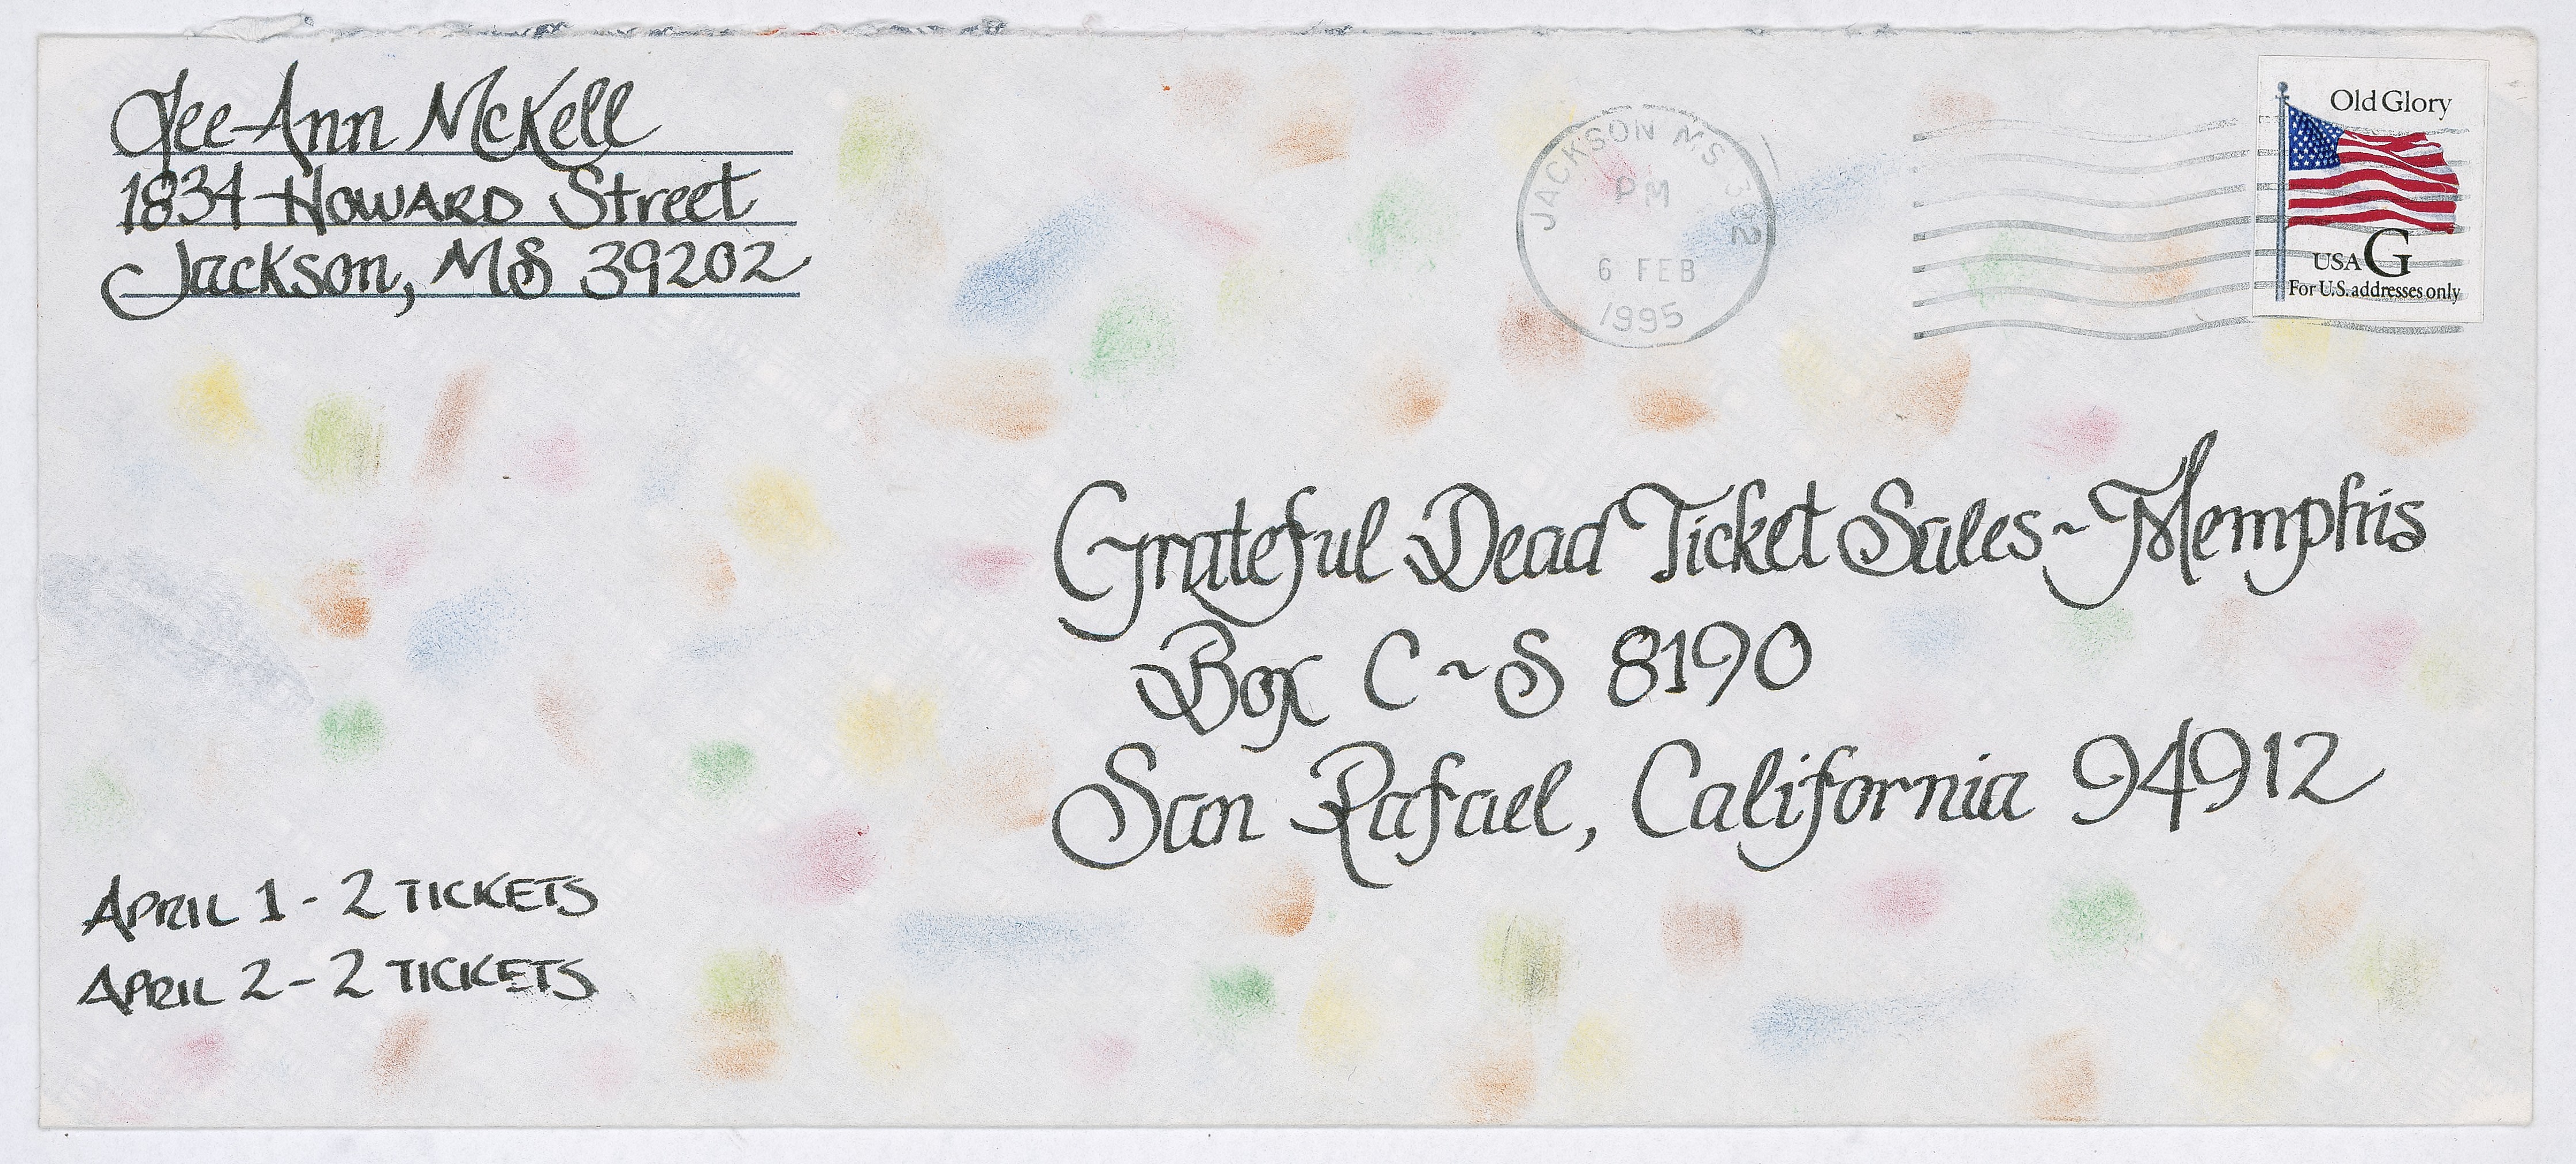 Gee-Ann McKell
1834 Howard Street
Jackson, MS 39202
JACKSON MS 392
PM
6 FEB
1995
Old Glory
USA G
For U.S. addresses only
Grateful Dead Ticket Sales~Memphis
Box C~S 8190
San Rafael, California 94912
APRIL 1 - 2 TICKETS
APRIL 2 - 2 TICKETS